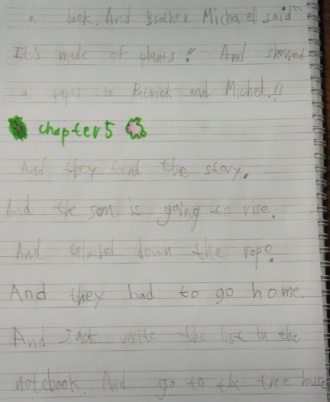 a book. And Brother Michael said
It's made of plants!! And showed
a paper to Patrick and Michel.!!
chapter5
And they find the story.
And the son is going to rise.
And climbed down the rope.
And they had to go home.
And Jack write the list in the
notebook. And go to the tree house